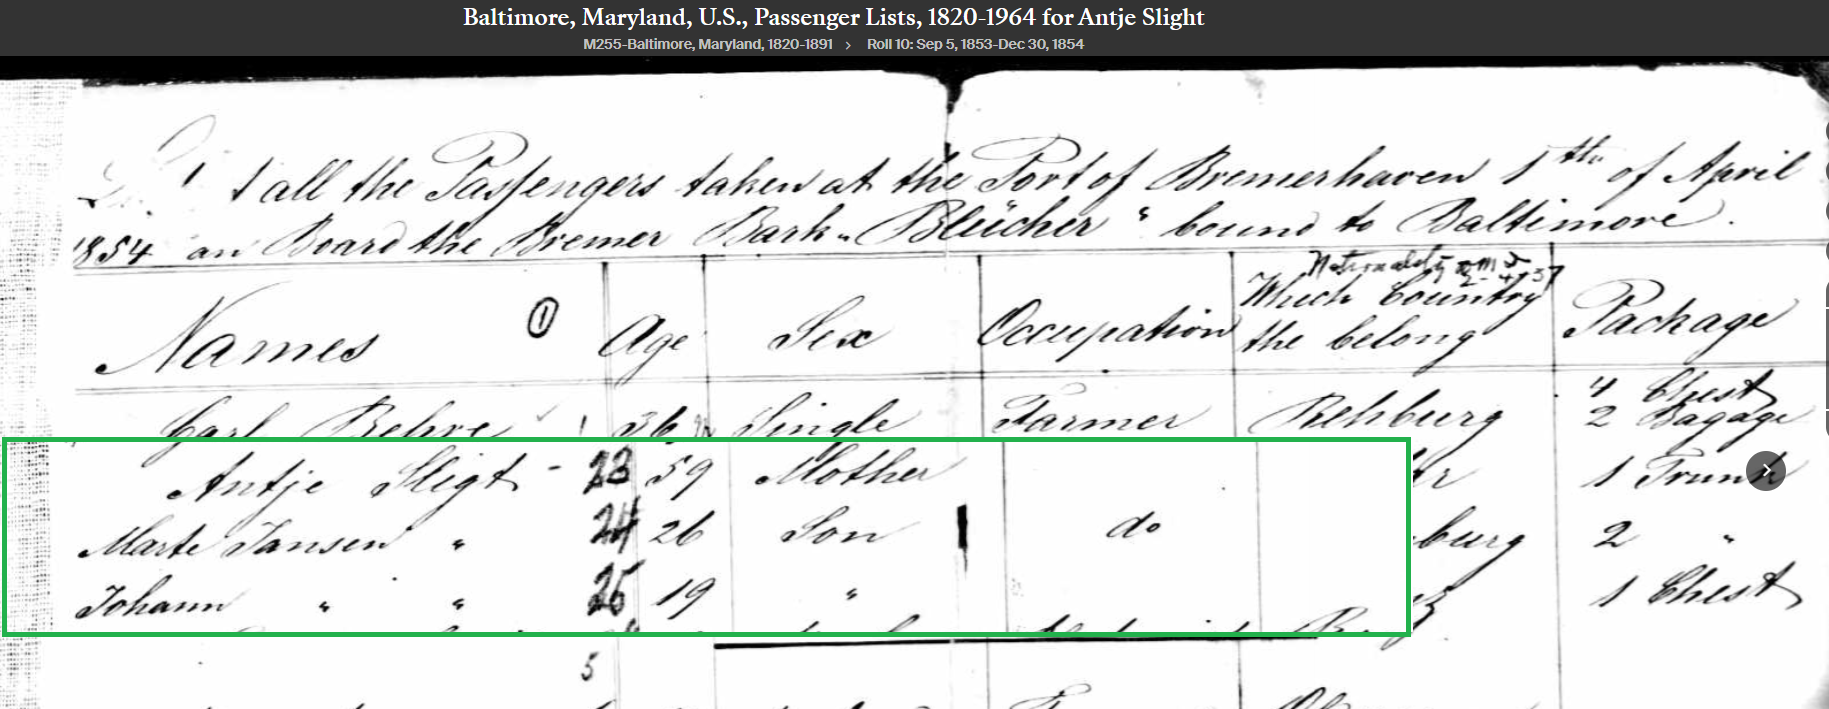 Baltimore, Maryland, U.S., Passenger Lists, 1820-1964 for Antje Slight
M255-Baltimore, Maryland, 1820-1891 > Roll 10: Sep 5, 1853-Dec 30, 1854
all the Passengers taken at the Port of Bremerhaven 1th of April
1854 an Board the Bremer Bark „Blücher“ bound to Baltimore.
Names ① Age Sex Occupation Nationality Which Country the belong Package
Carl Behre 1 36 Single Farmer Rehburg 4 Chest 2 Bagage
Antje Sligt - 23 59 Mother 1 Trunk
Marte Jansen " 24 26 Son do burg 2 "
Johann " " 25 19 " 1 Chest
5